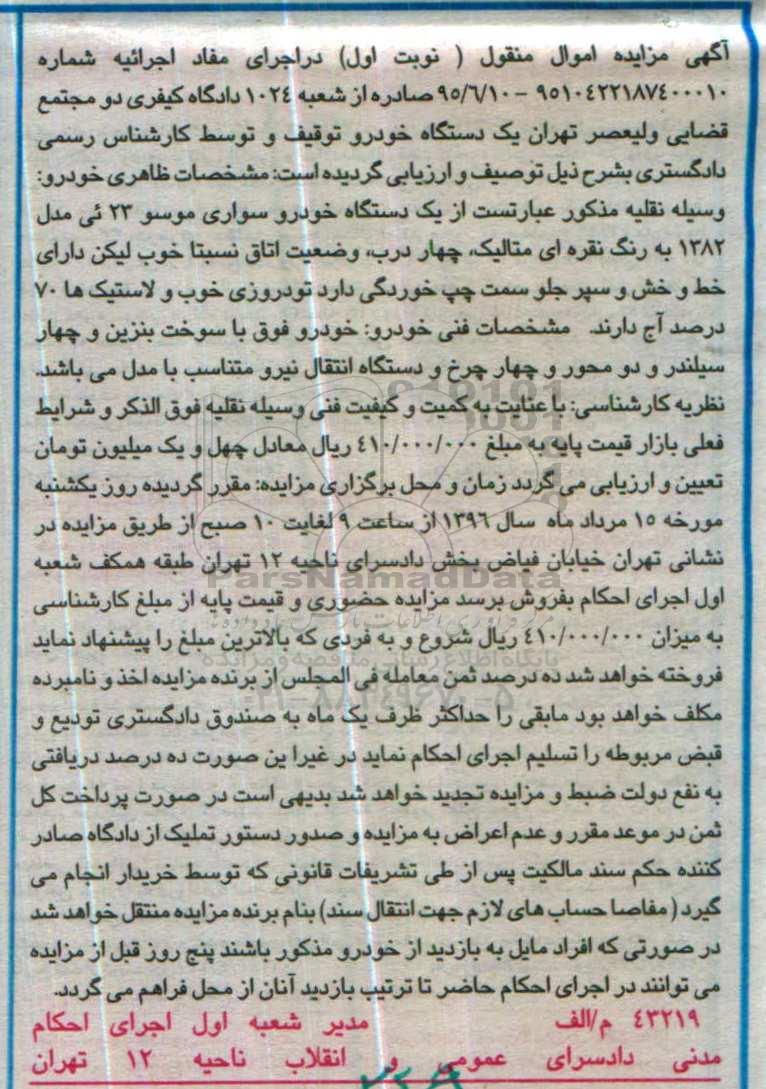 آگهی مزایده اموال منقول ( نوبت اول) دراجرای مفاد اجرائیه شماره
۹۵۱۰٤۲۲۱۸۷٤۰۰۰۱۰ - ۹۵/٦/۱۰ صادره از شعبه ۱۰۲٤ دادگاه کیفری دو مجتمع
قضایی ولیعصر تهران یک دستگاه خودرو توقیف و توسط کارشناس رسمی
دادگستری بشرح ذیل توصیف و ارزیابی گردیده است: مشخصات ظاهری خودرو:
وسیله نقلیه مذکور عبارتست از یک دستگاه خودرو سواری موسو ۲۳ ئی مدل
۱۳۸۲ به رنگ نقره ای متالیک، چهار درب، وضعیت اتاق نسبتا خوب لیکن دارای
خط و خش و سپر جلو سمت چپ خوردگی دارد تودروزی خوب و لاستیک ها ۷۰
درصد آج دارند. مشخصات فنی خودرو: خودرو فوق با سوخت بنزین و چهار
سیلندر و دو محور و چهار چرخ و دستگاه انتقال نیرو متناسب با مدل می باشد.
نظریه کارشناسی: با عنایت به کمیت و کیفیت فنی وسیله نقلیه فوق الذکر و شرایط
فعلی بازار قیمت پایه به مبلغ ٤۱۰/۰۰۰/۰۰۰ ریال معادل چهل و یک میلیون تومان
تعیین و ارزیابی می گردد زمان و محل برگزاری مزایده: مقرر گردیده روز یکشنبه
مورخه ۱۵ مرداد ماه سال ۱۳۹٦ از ساعت ۹ لغایت ۱۰ صبح از طریق مزایده در
نشانی تهران خیابان فیاض بخش دادسرای ناحیه ۱۲ تهران طبقه همکف شعبه
اول اجرای احکام بفروش برسد مزایده حضوری و قیمت پایه از مبلغ کارشناسی
به میزان ٤۱۰/۰۰۰/۰۰۰ ریال شروع و به فردی که بالاترین مبلغ را پیشنهاد نماید
فروخته خواهد شد ده درصد ثمن معامله فی المجلس از برنده مزایده اخذ و نامبرده
مکلف خواهد بود مابقی را حداکثر ظرف یک ماه به صندوق دادگستری تودیع و
قبض مربوطه را تسلیم اجرای احکام نماید در غیرا ین صورت ده درصد دریافتی
به نفع دولت ضبط و مزایده تجدید خواهد شد بدیهی است در صورت پرداخت کل
ثمن در موعد مقرر و عدم اعراض به مزایده و صدور دستور تملیک از دادگاه صادر
کننده حکم سند مالکیت پس از طی تشریفات قانونی که توسط خریدار انجام می
گیرد ( مفاصا حساب های لازم جهت انتقال سند) بنام برنده مزایده منتقل خواهد شد
در صورتی که افراد مایل به بازدید از خودرو مذکور باشند پنج روز قبل از مزایده
می توانند در اجرای احکام حاضر تا ترتیب بازدید آنان از محل فراهم می گردد.
٤۳۲۱۹ م/الف مدیر شعبه اول اجرای احکام
مدنی دادسرای عمومی و انقلاب ناحیه ۱۲ تهران
ParsNamadData
پایگاه اطلاع رسانی مناقصه و مزایده
۰۲۱-۸۸۳٤۹٦۷۰-۵